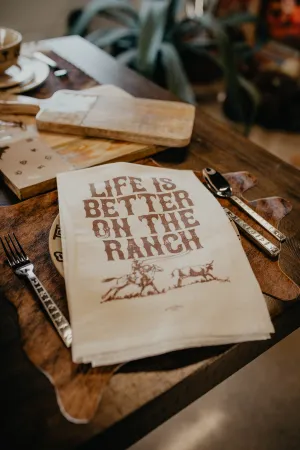 LIFE IS
BETTER
ON THE
RANCH